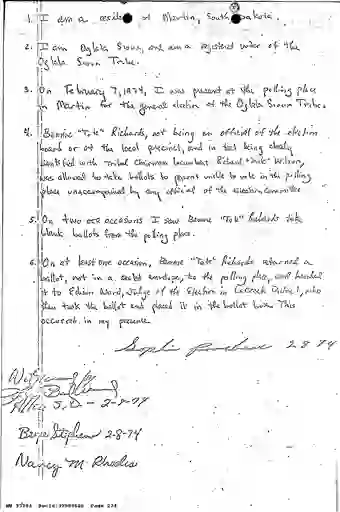 1. I am a resident of Martin, South Dakota.
2. I am Oglala Sioux, and am a registered voter of the
Oglala Sioux Tribe.
3. On February 7, 1974, I was present at the polling place
in Martin for the general election of the Oglala Sioux Tribe.
4. Bennie "Tote" Richards, not being an official of the election
board or of the local precinct, and in fact being closely
identified with Tribal Chairman Incumbent Richard "Dick" Wilson,
was allowed to take ballots to persons unable to vote in the polling
place unaccompanied by any official of the election committee
5. On two occasions I saw Bennie "Tote" Richards take
blank ballots from the polling place.
6. On at least one occasion, Bennie "Tote" Richards returned a
ballot, not in a sealed envelope, to the polling place, and handed
it to Edison Ward, Judge of the Election in District, who
then took the ballot and placed it in the ballot box. This
occurred in my presence.
Sophie 2-8-74
Witness
Atty S.D. - 2-8-74
Stephens 2-8-74
Nancy M. Rhodes